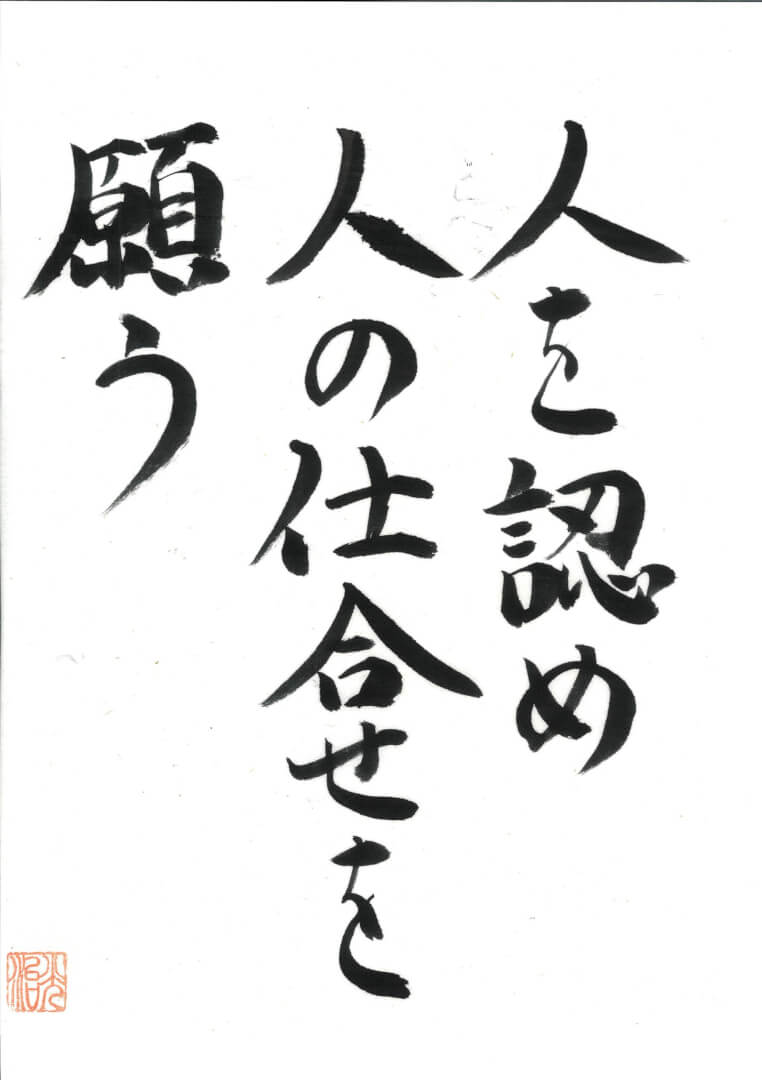 人を認め
人の仕合せを
願う